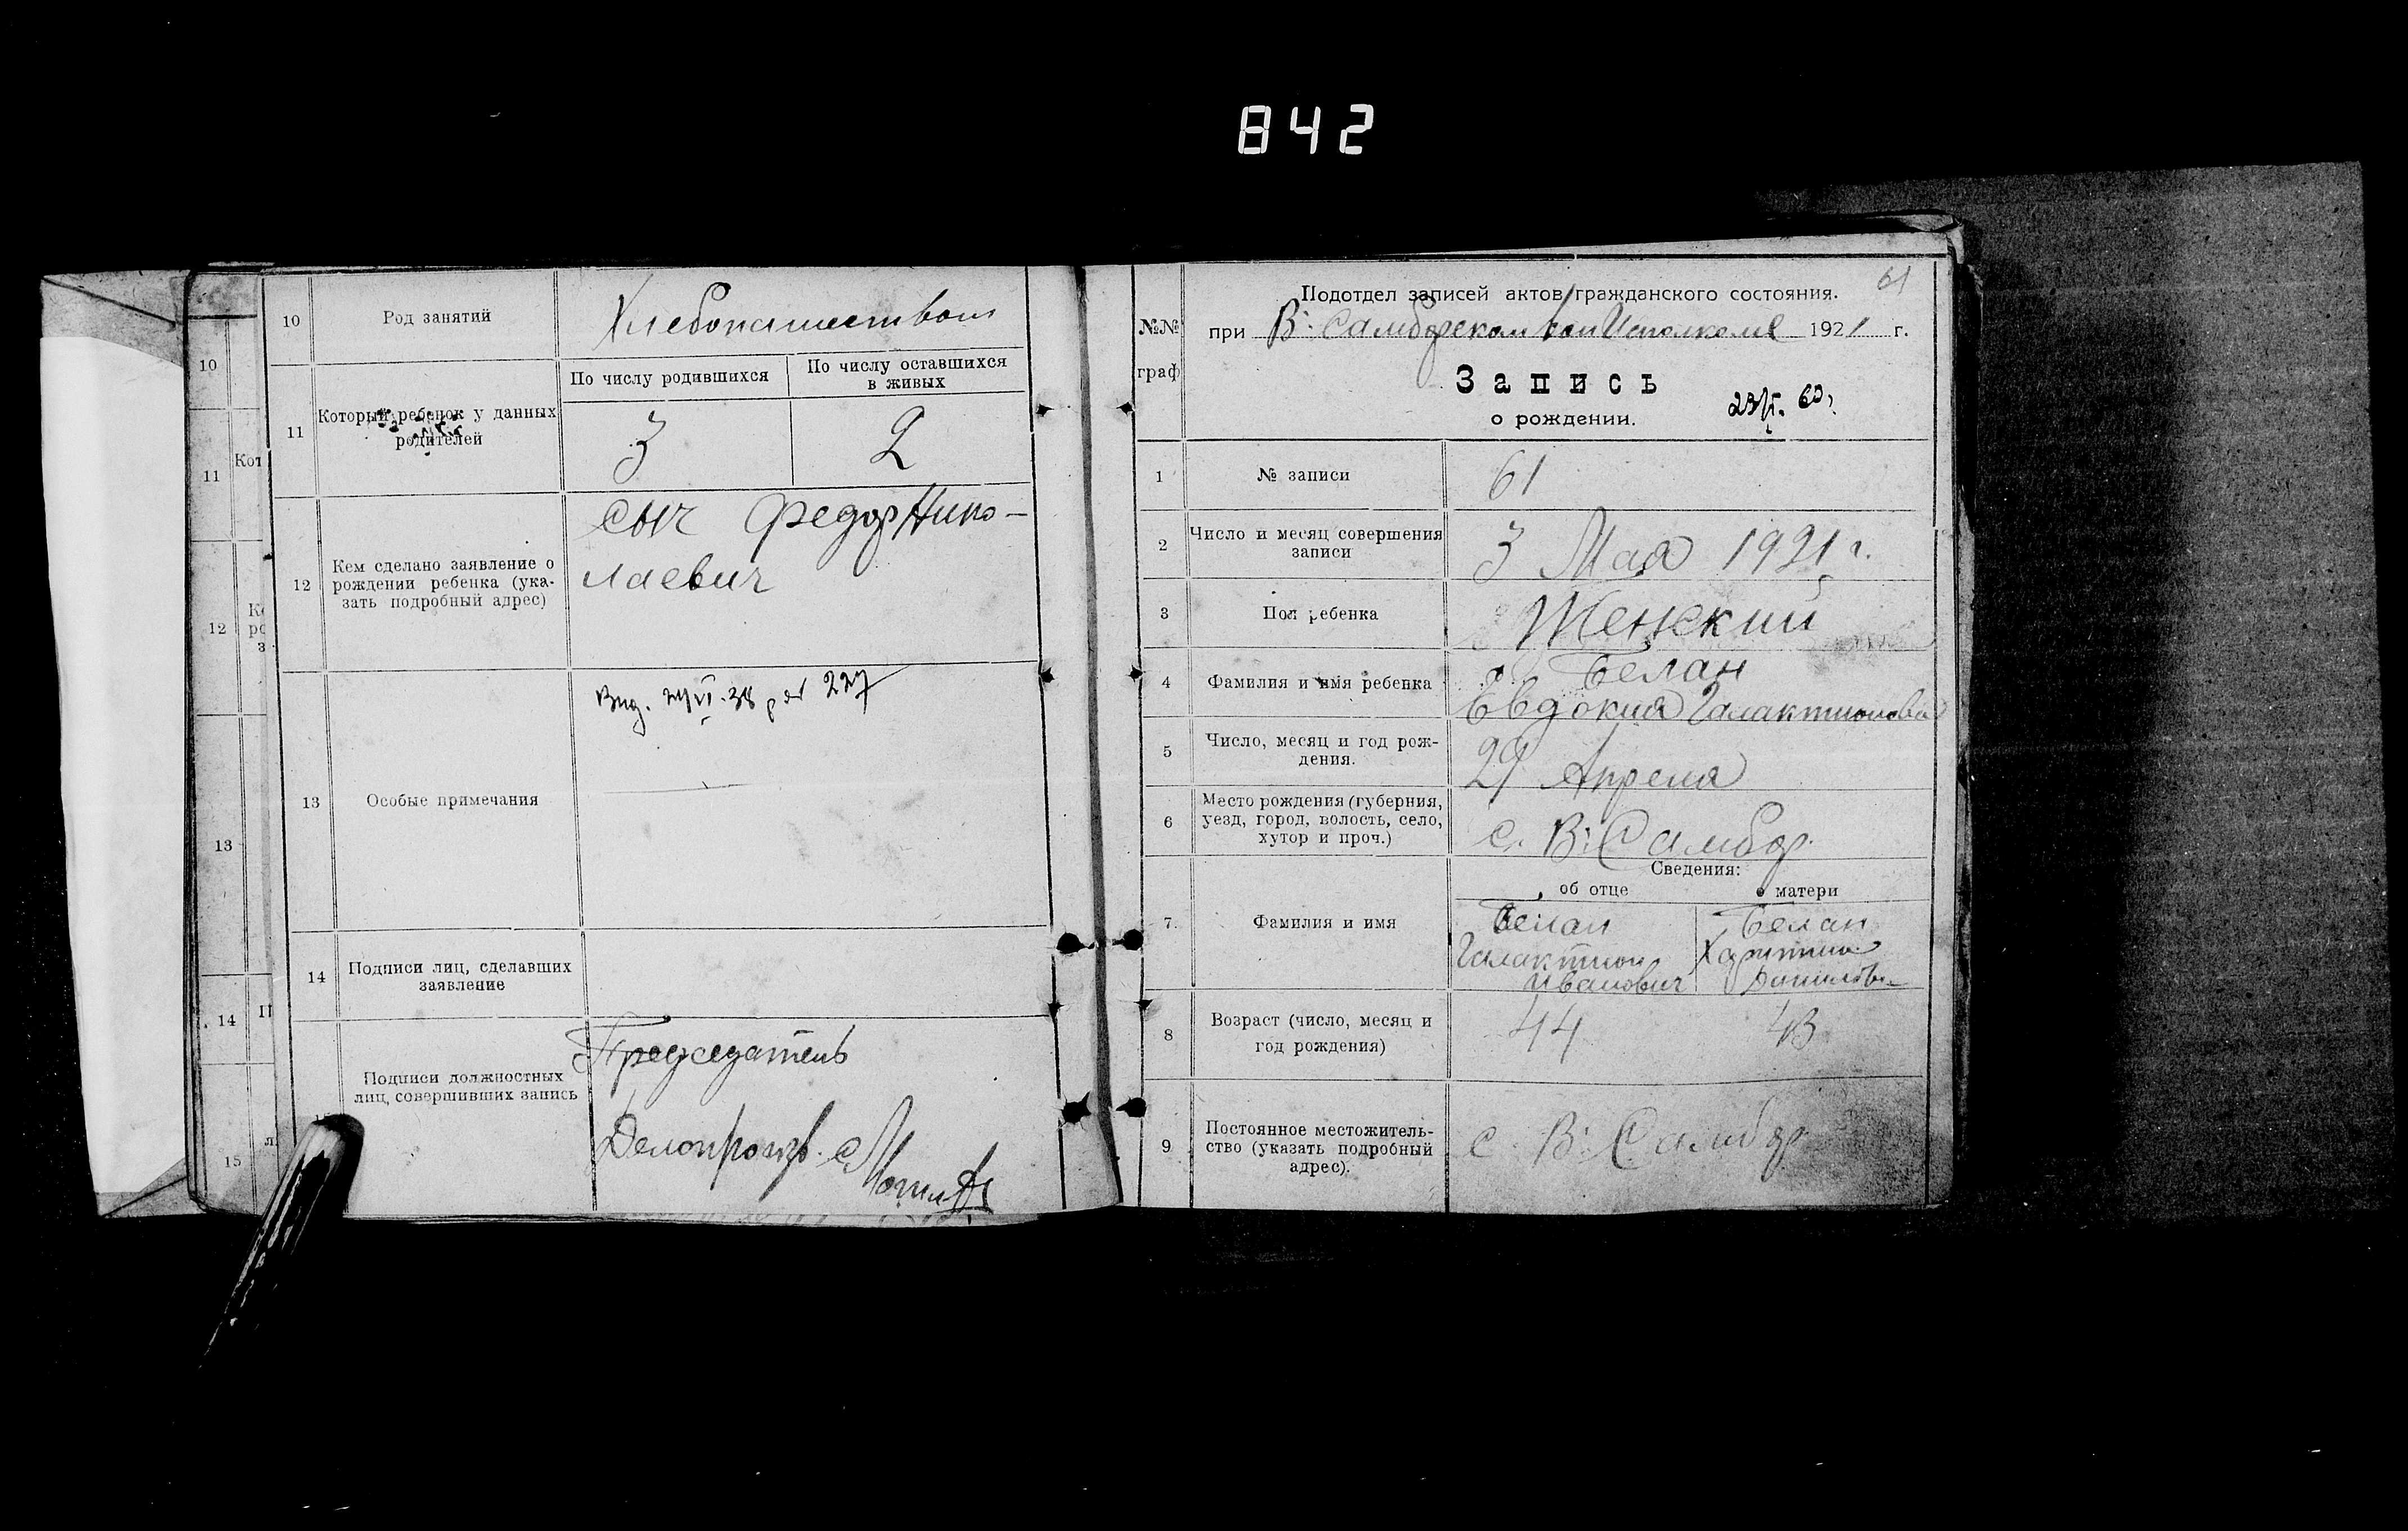 842
10
Кот
11
12
13
14
15
10
Род занятий
Хлебопашеством
11
Который ребенок у данных
родителей
По числу родившихся
По числу оставшихся
в живых
3
2
12
Кем сделано заявление о
рождении ребенка (ука-
зать подробный адрес)
Сыч Федор Нико-
лаевич
13
Особые примечания
Вид. VI.38 227
14
Подписи лиц, сделавших
заявление
Подписи должностных
лиц, совершивших запись
Председатель
Делопроизв.
61
№№
граф
Подотдел записей актов гражданского состояния.
при В: Самборском вол Исполкоме 1921 г.
Запись
о рождении.
1
№ записи
61
2
Число и месяц совершения
записи
3 Мая 1921 г.
3
Пол ребенка
Женский
4
Фамилия и имя ребенка
Белан
Евдокия Галактионова
5
Число, месяц и год рож-
дения.
29 Апреля
6
Место рождения (губерния,
уезд, город, волость, село,
хутор и проч.)
с. В: Самбор
Сведения:
об отце
о матери
7
Фамилия и имя
Белан
Галактион
Иванович
Белан
Харитина
Данилов.
8
Возраст (число, месяц и
год рождения)
44
43
9
Постоянное местожитель-
ство (указать подробный
адрес).
с В: Самбор